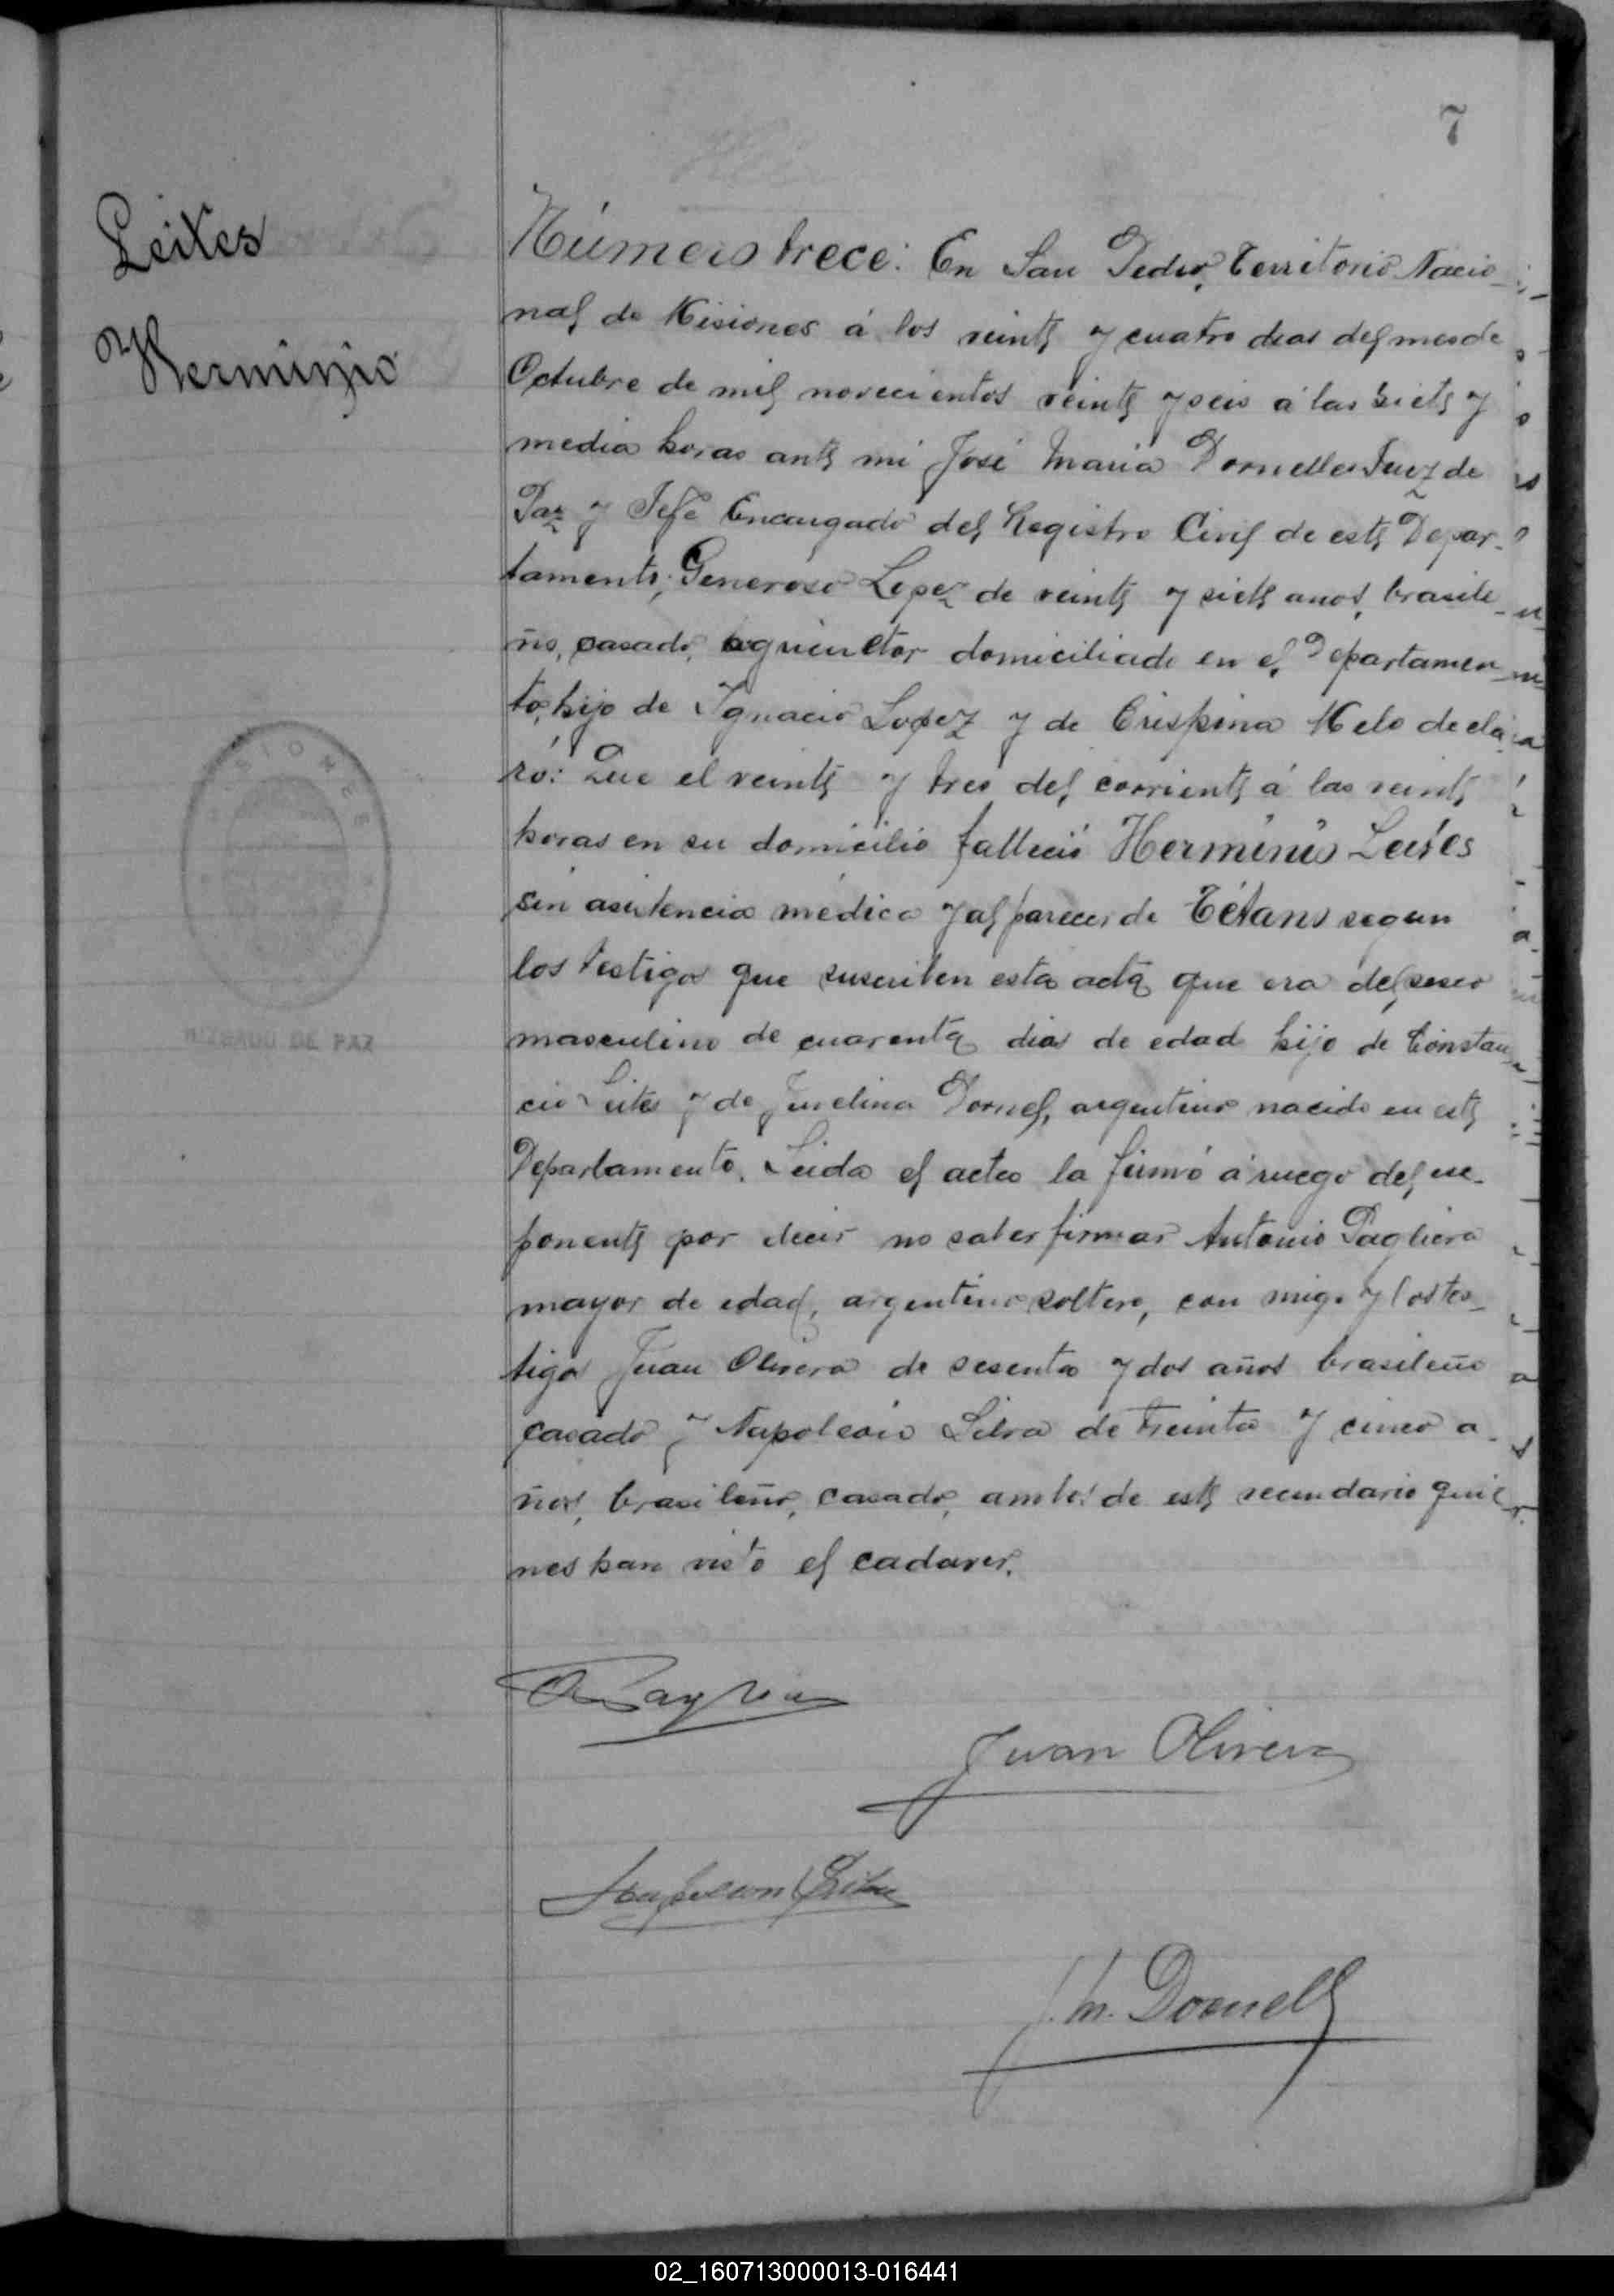 7
Leites
Herminio
Número trece: En San Pedro, Territorio Nacio-
nal de Misiones á los veinte y cuatro dias del mes de
Octubre de mil novecientos veinte y seis á las siete y
media horas ante mi José Maria Dornelles Juez de
Paz y Jefe Encargado del Registro Civil de este Depar-
tamento; Generoso Lopez de veinte y siete años, brasile-
ño, casado, agricultor domiciliado en el Departamen-
to, hijo de Ignacio Lopez y de Crispina Melo decla-
ró: Que el veinte y tres del corriente á las veinte
horas en su domicilio falleció Herminio Leites
sin asistencia médica y al parecer de Tétano segun
los testigos que suscriben esta acta que era del sexo
masculino de cuarenta dias de edad hijo de Constan-
cio Leites y de Dornel, argentino nacido en este
Departamento. Leida el acta la firmó á ruego del ex-
ponente por decir no saber firmar Antonio Pagliera
mayor de edad, argentino soltero, con migo y los tes-
tigos Juan Olivera de sesenta y dos años brasileño
casado y Napoleón Silva de treinta y cinco a-
ños, brasileño, casado, ambos de este secundario quie-
nes han visto el cadaver.
Juan Olivera
Napoleon Silva
J. M. Dornell
MISIONES
JUZGADO DE PAZ
02_160713000013-016441